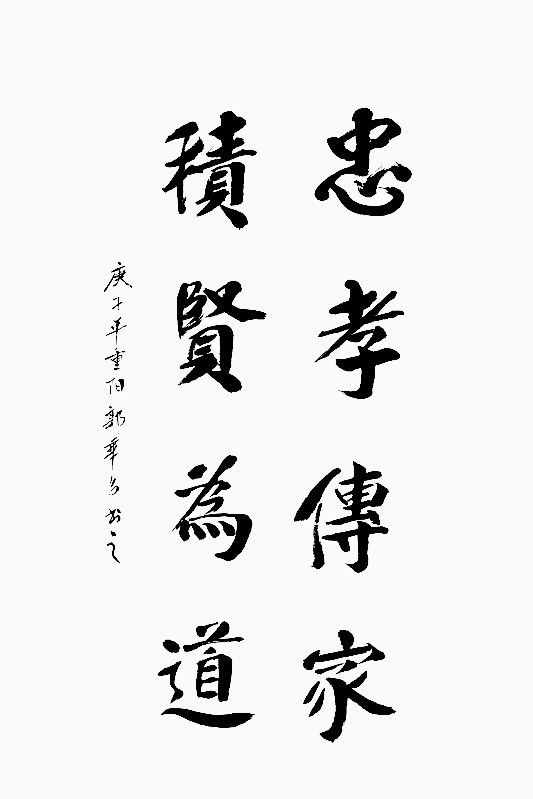 忠孝傳家
積賢為道
庚子年重陽郭華書之